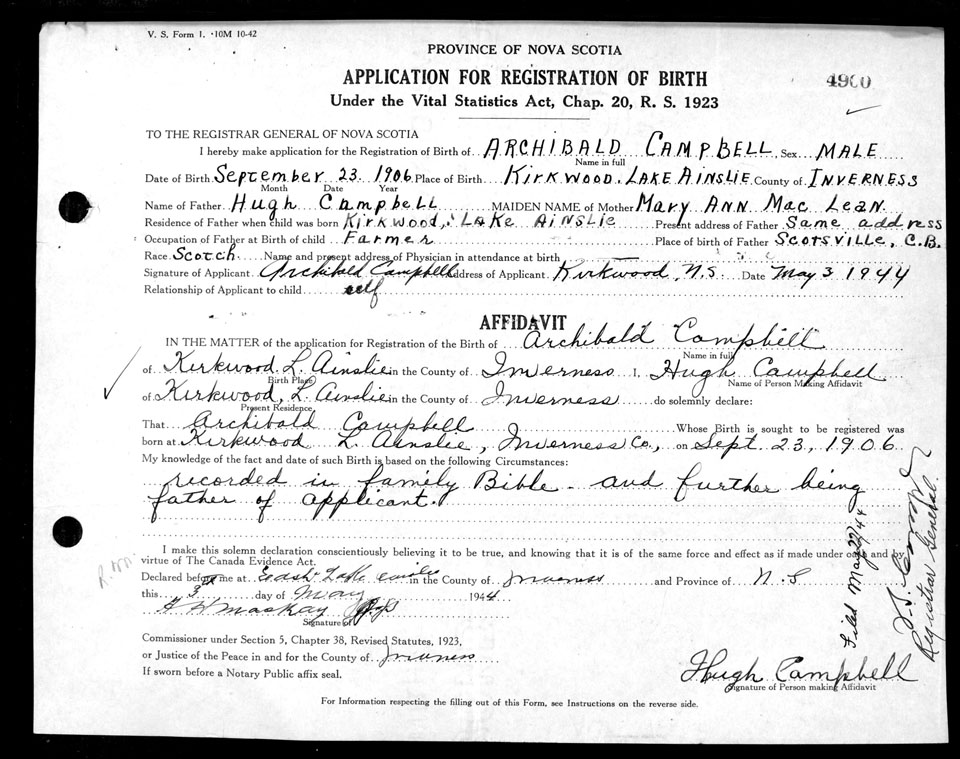 V. S. Form 1. 10M 10-42
PROVINCE OF NOVA SCOTIA
APPLICATION FOR REGISTRATION OF BIRTH
4900
Under the Vital Statistics Act, Chap. 20, R. S. 1923
TO THE REGISTRAR GENERAL OF NOVA SCOTIA
I hereby make application for the Registration of Birth of ARCHIBALD CAMPBELL Sex MALE
Name in full
Date of Birth September 23 1906 Place of Birth KIRKWOOD, LAKE AINSLIE County of INVERNESS
Month Date Year
Name of Father Hugh Campbell MAIDEN NAME of Mother Mary Ann Mac Lean
Residence of Father when child was born Kirkwood, Lake Ainslie Present address of Father Same address
Occupation of Father at Birth of child Farmer Place of birth of Father Scotsville, C.B.
Race Scotch Name and present address of Physician in attendance at birth —
Signature of Applicant Archibald Campbell Address of Applicant Kirkwood, N.S. Date May 3 1944
Relationship of Applicant to child self
AFFIDAVIT
IN THE MATTER of the application for Registration of the Birth of Archibald Campbell
Name in full
of Kirkwood L. Ainslie in the County of Inverness I, Hugh Campbell
Birth Place Name of Person Making Affidavit
of Kirkwood, L. Ainslie in the County of Inverness do solemnly declare:
Present Residence
That Archibald Campbell Whose Birth is sought to be registered was
born at Kirkwood L. Ainslie, Inverness Co., on Sept. 23, 1906
My knowledge of the fact and date of such Birth is based on the following Circumstances:
recorded in family Bible. and further being
father of applicant.
I make this solemn declaration conscientiously believing it to be true, and knowing that it is of the same force and effect as if made under oath and by
virtue of The Canada Evidence Act.
Declared before me at East Lake Ainslie in the County of Inverness and Province of N. S
this 3rd day of May 1944
MacKay J.P.
Signature of
Commissioner under Section 5, Chapter 38, Revised Statutes, 1923,
or Justice of the Peace in and for the County of Inverness
If sworn before a Notary Public affix seal.
Hugh Campbell
Signature of Person making Affidavit
For Information respecting the filling out of this Form, see Instructions on the reverse side.
Filed May 44
Registrar General